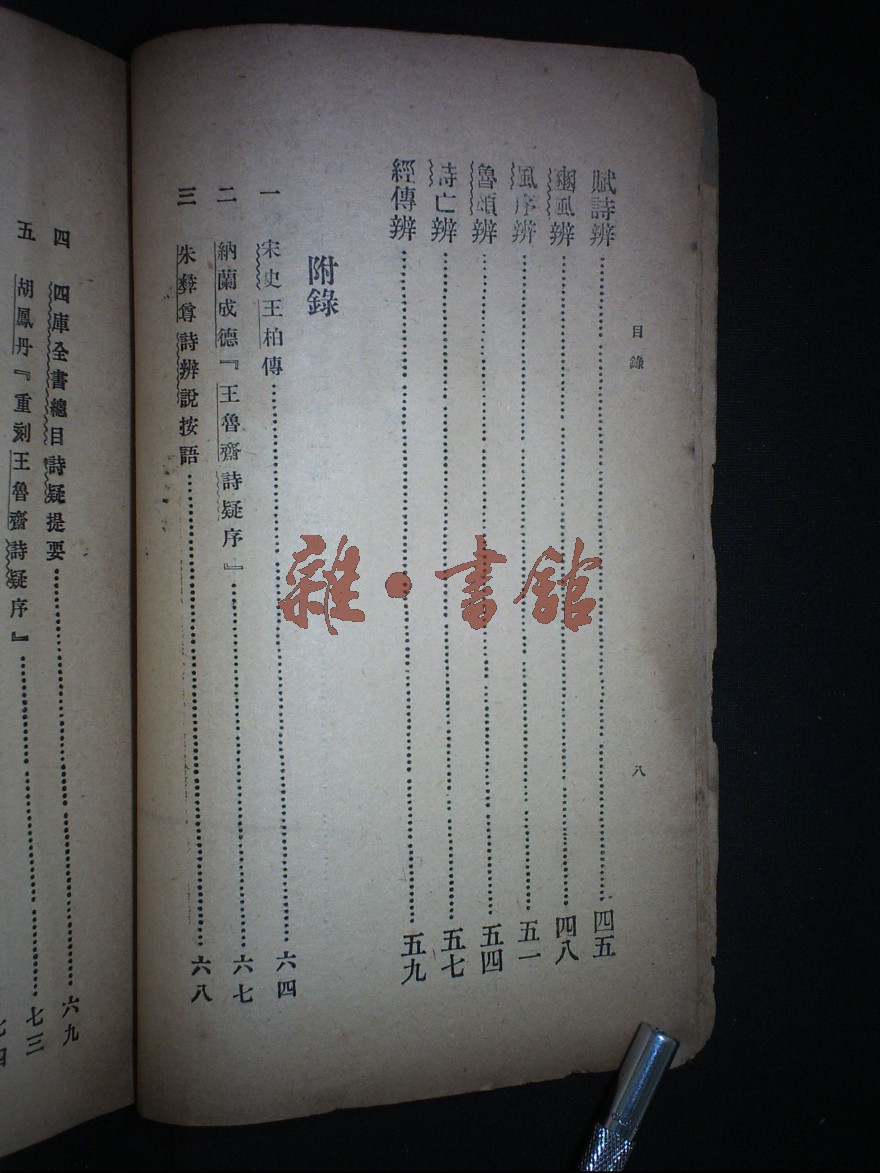 目錄
八
賦詩辨 四五
豳風辨 四八
風序辨 五一
魯頌辨 五四
詩亡辨 五七
經傳辨 五九
附錄
一 宋史王柏傳 六四
二 納蘭成德『王魯齋詩疑序』 六七
三 朱彝尊詩辨說按語 六八
四 四庫全書總目詩疑提要 六九
五 胡鳳丹『重刻王魯齋詩疑序』 七三
雜·書館